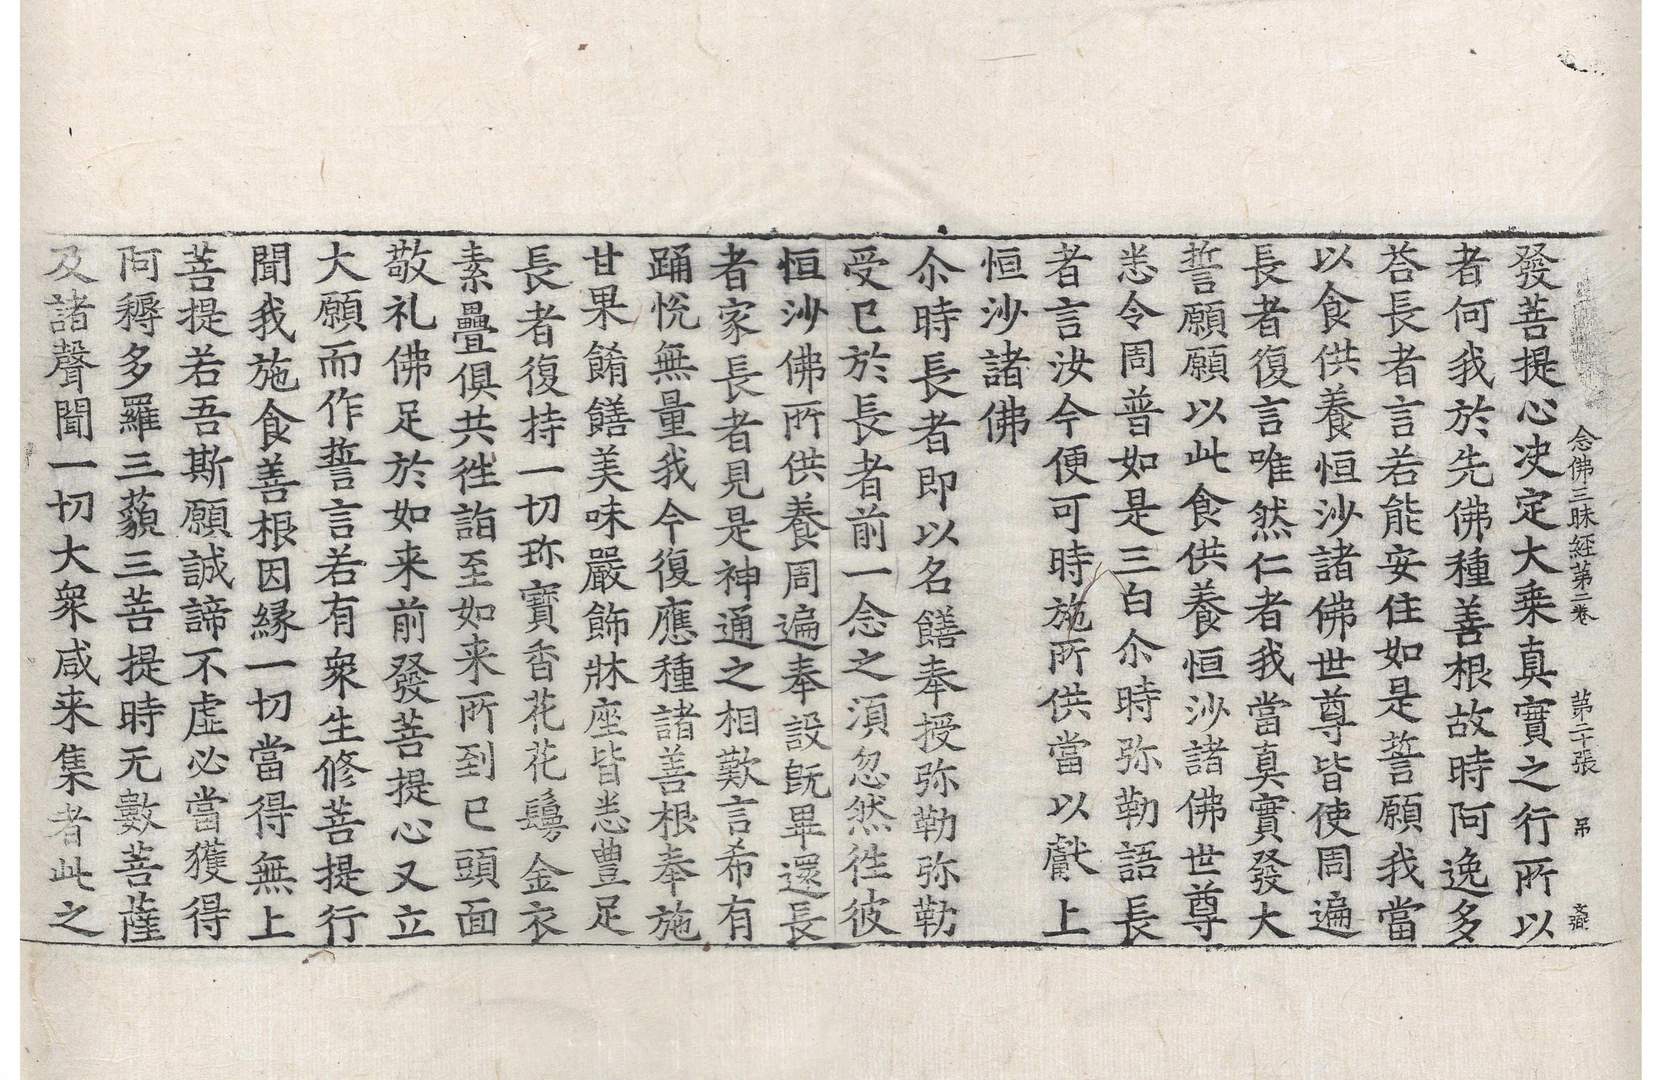 念佛三昧経第二卷　第二十張　吊
發菩提心决定大乗真實之行所以
者何我於先佛種善根故時阿逸多
荅長者言若能安住如是誓願我當
以食供養恒沙諸佛世尊皆使周遍
長者復言唯然仁者我當真實發大
誓願願以此食供養恒沙諸佛世尊
悉令周普如是三白尒時弥勒語長
者言汝今便可時施所供當以獻上
恒沙諸佛
尒時長者即以名饍奉授弥勒弥勒
受已於長者前一念之湏忽然徃彼
恒沙佛所供養周遍奉設旣畢還長
者家長者見是神通之相歎言希有
踊悅無量我今復應種諸善根奉施
甘果餚饍美味嚴飾牀座皆悉豊足
長者復持一切珎寶香花花鬘金衣
素疊俱共徃詣至如来所到已頭面
敬礼佛足於如来前發菩提心又立
大願而作誓言若有衆生修菩提行
聞我施食善根因緣一切當得無上
菩提若吾斯願誠諦不虛必當獲得
阿耨多羅三藐三菩提時无數菩薩
及諸聲聞一切大衆咸来集者此之